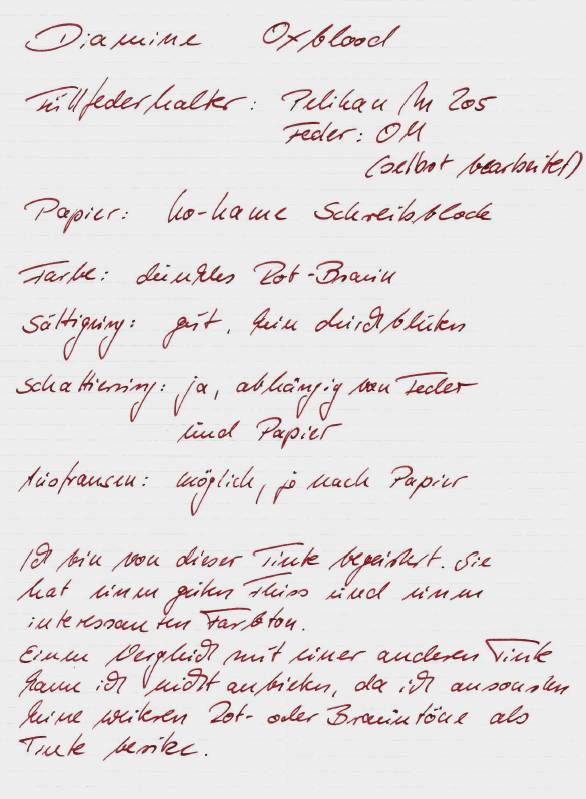 Diamine Oxblood
Füllfederhalter: Pelikan M 205
Feder: OM
(selbst bearbeitet)
Papier: no-name Schreibblock
Farbe: dunkles Rot-Braun
Sättigung: gut, kein durchbluten
Schattierung: ja, abhängig von Feder
und Papier
Ausfransen: möglich, je nach Papier
Ich bin von dieser Tinte begeistert. Sie
hat einen guten Fluss und einen
interessanten Farbton.
Einen Vergleich mit einer anderen Tinte
kann ich nicht anbieten, da ich ansonsten
keine weiteren Rot- oder Brauntöne als
Tinte besitze.